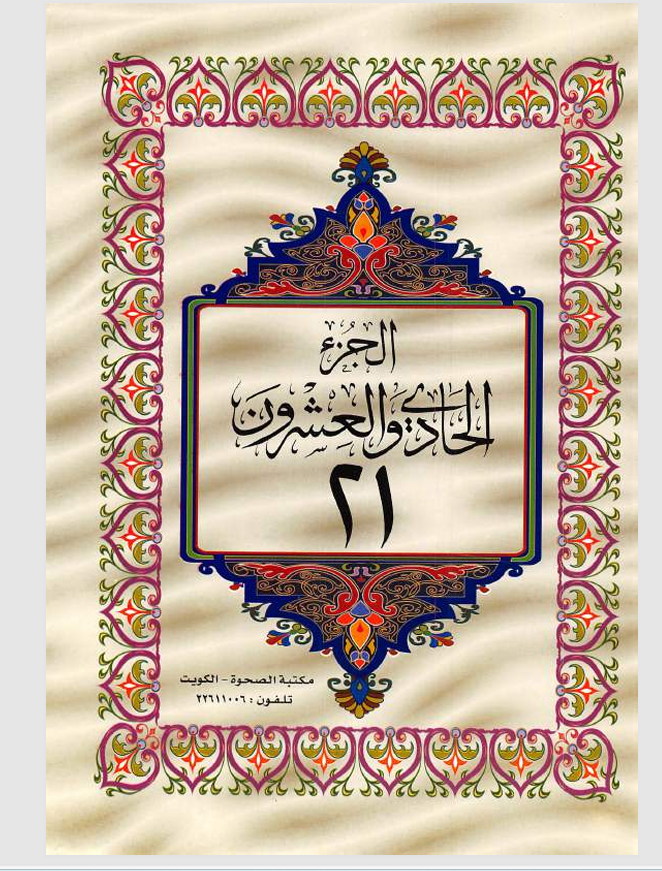 الجُزء
الحَادي وَالعِشرون
٢١
مكتبة الصحوة - الكويت
تلفون : ٢٢٦١١٠٠٦